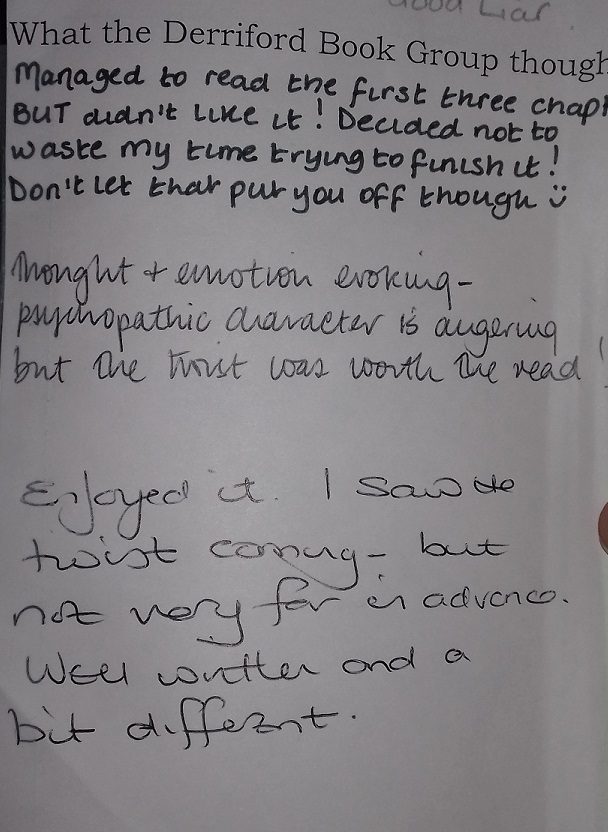 Good Liar
What the Derriford Book Group though
Managed to read the first three chapt
BUT didn't like it! Decided not to
waste my time trying to finish it!
Don't let that put you off though :)
Thought + emotion evoking -
psychopathic character is angering
but the twist was worth the read!
Enjoyed it. I saw the
twist coming - but
not very far in advance.
Well written and a
bit different.